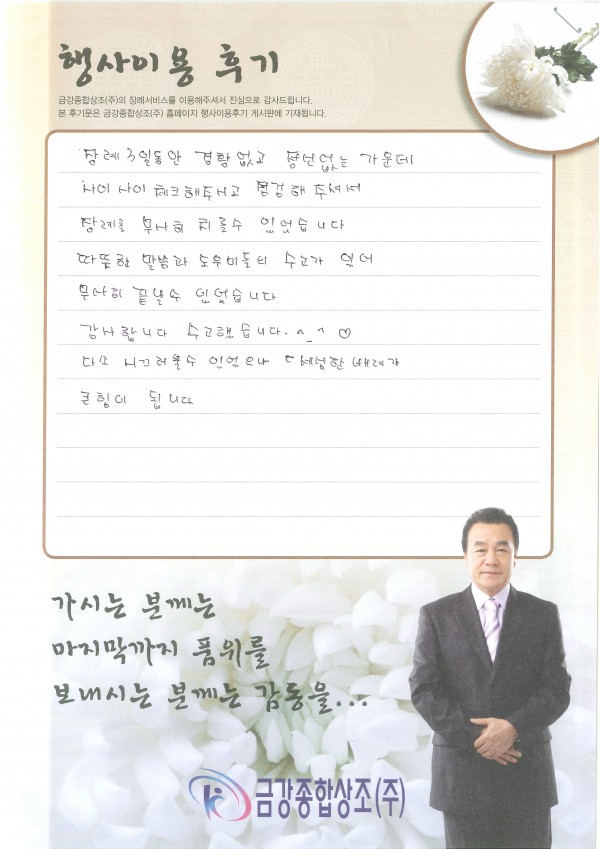 행사이용 후기
금강종합상조(주)의 장례서비스를 이용해주셔서 진심으로 감사드립니다.
본 후기문은 금강종합상조(주) 홈페이지 행사이용후기 게시판에 기재됩니다.
장례 3일동안 경황없고 정신없는 가운데
사이사이 체크해주시고 점검해 주셔서
장례를 무사히 치를수 있었습니다
따뜻한 말씀과 도우미들의 수고가 있어
무사히 끝낼수 있었습니다
감사합니다 수고했습니다. ^_^ ♡
다소 시끄러울수 있었으나 세심한 배려가
큰힘이 됩니다
가시는 분께는
마지막까지 품위를
보내시는 분께는 감동을...
금강종합상조(주)